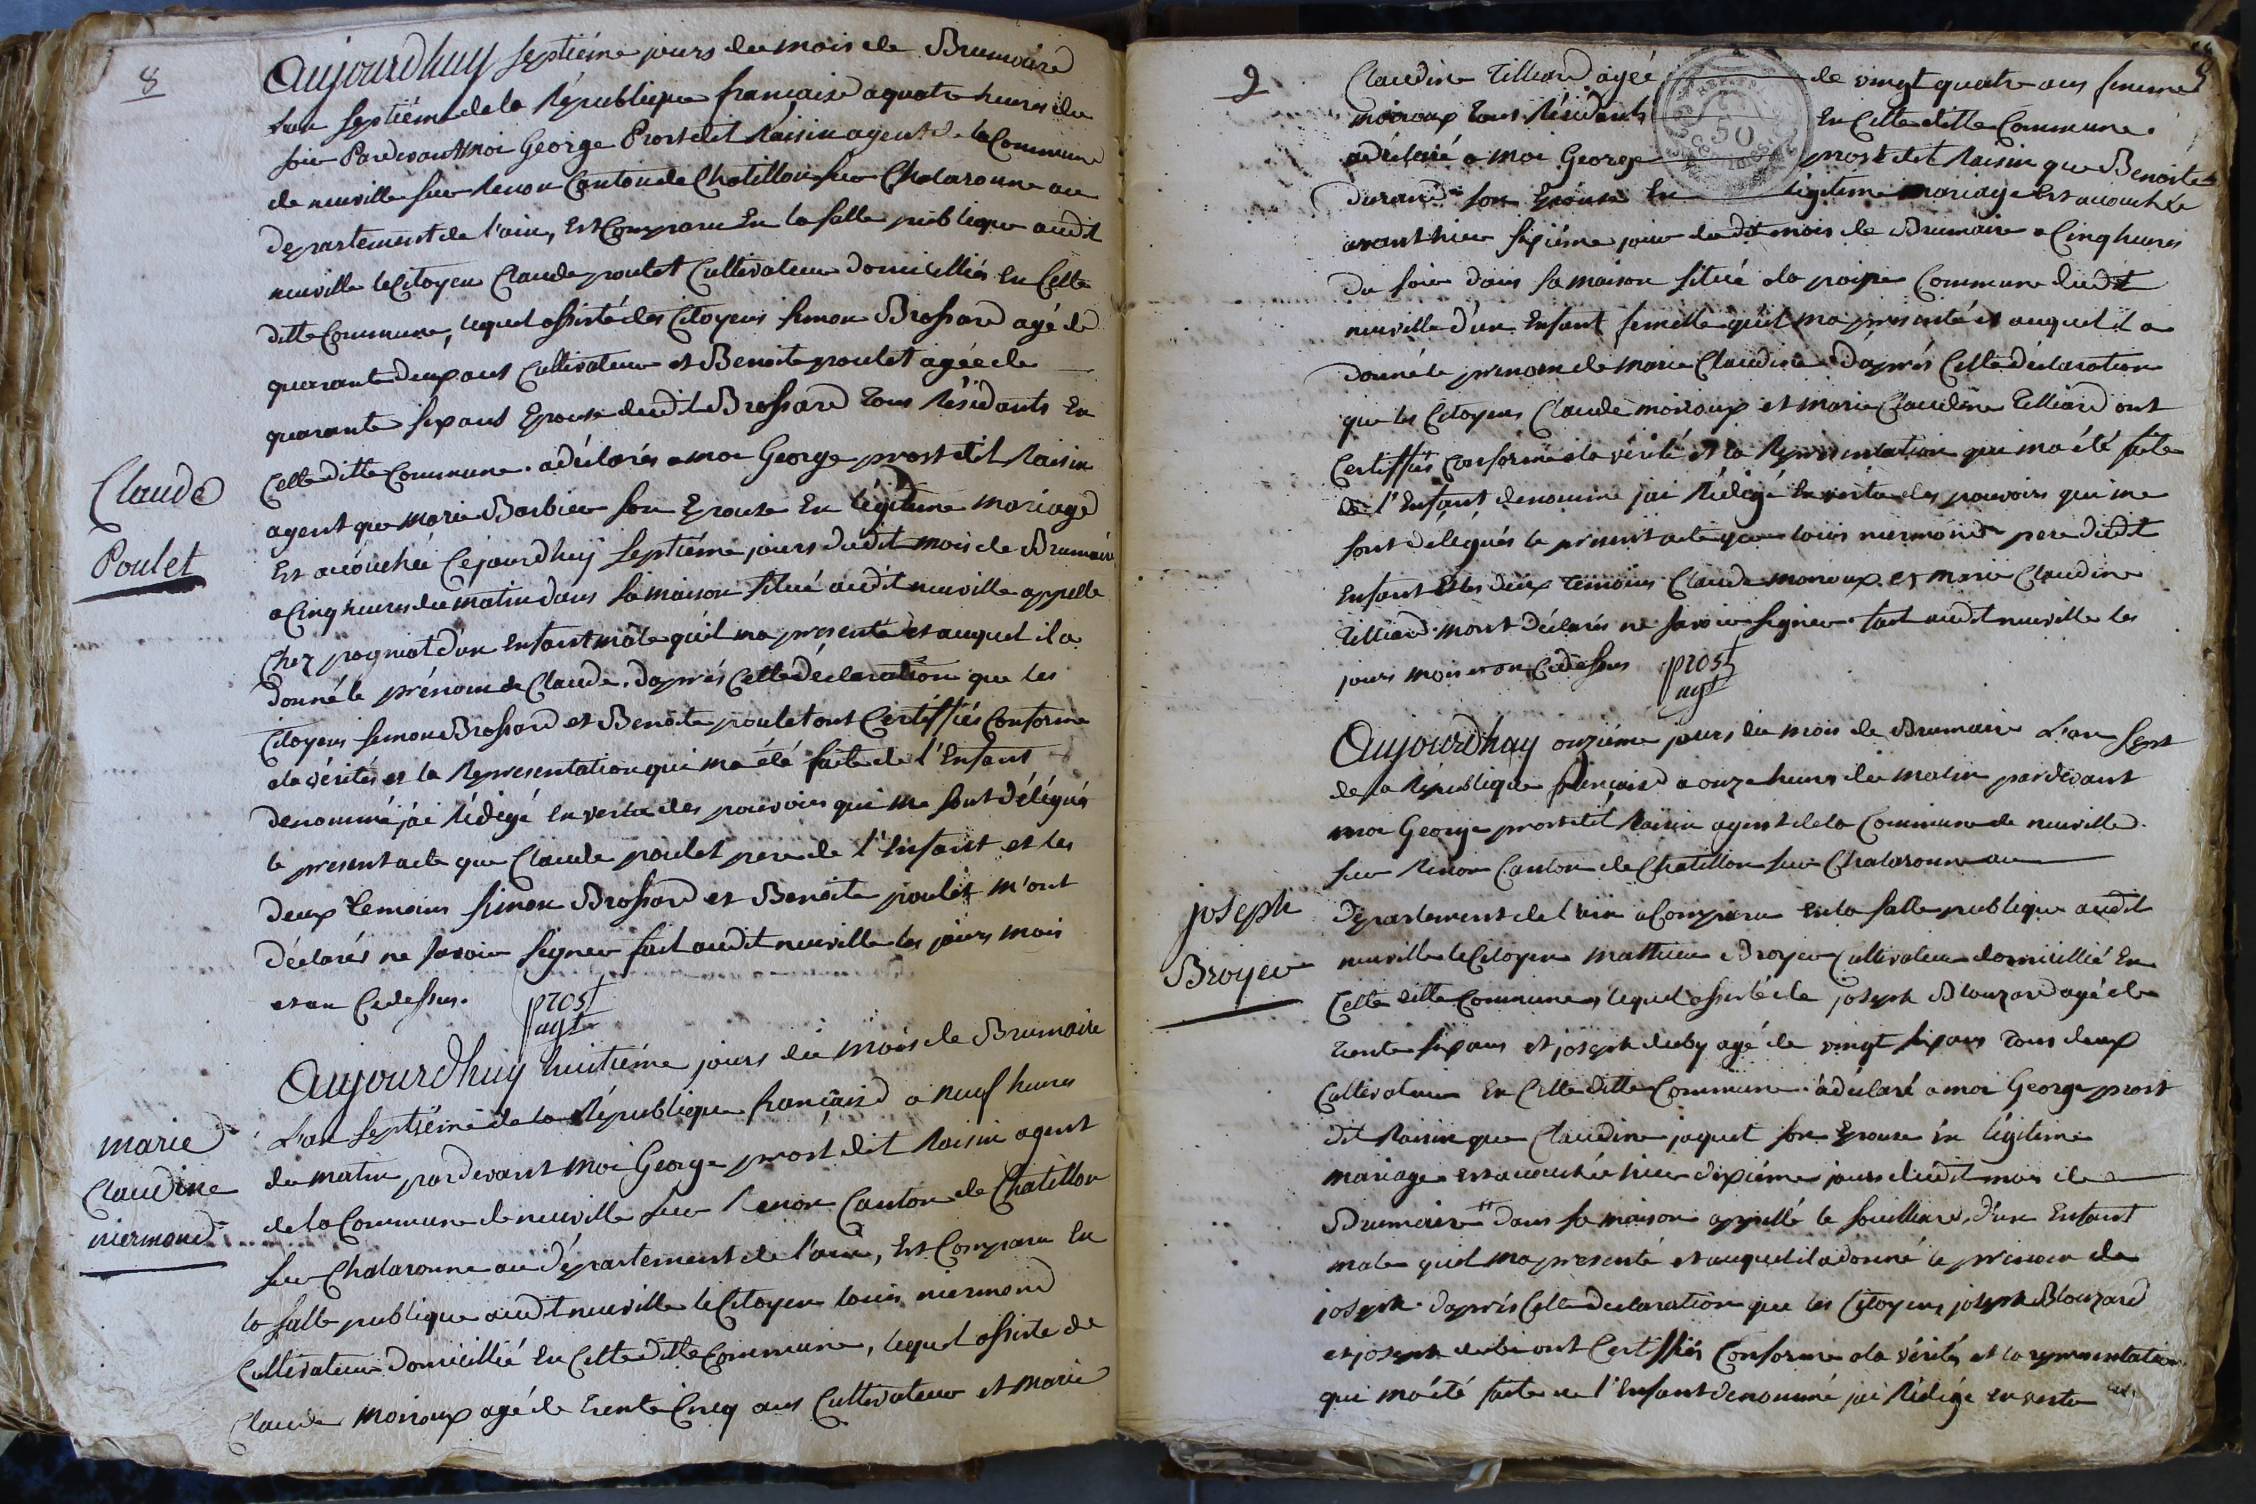 8
Aujourdhuy septiéme jours du mois de Brumaire
L'an septiéme de la République francaise a quatre heures du
soir Pardevant Moi George Prost dit Raisin agent de la Commune
de neuville sur Renon Canton de Chatillon sur Chalaronne au
departement de l'ain, Est Comparu En la salle publique audit
neuville le Citoyen Claude poulet Cultivateur domicilliés En Cette
ditte Commune, lequel assisté des Citoyens simon Brossard agé de
quarante deux ans Cultivateur et Benoite poulet agée de
quarante six ans Epouse dudit Brossard tous Résidants En
Cette ditte Commune. a déclarés a moi George prost dit Raisin
agent que Marie Barbier son Epouse En légitime mariage
Est acouchée Cejourdhuÿ septiéme jours dudit mois de Brumaire
a Cinq heures du matin dans sa maison situé audit neuville appellé
Chez pogniat d'un enfant mâle qu'il ma presenté et auquel il a
donné le prénom de Claude. d'aprés Cette déclaration que les
Citoyens simon Brossard et Benoite poulet ont Certiffiés Conforme
a la vérités et la Representation qui ma été faite de l'Enfant
denommé j'ai Rédigé En vertu des pouvoirs qui me sont délégués
le present acte que Claude poulet pere de l'Enfant et les
deux temoins simon Brossard et Benoite poulet m'ont
déclarés ne savoir signer fait audit neuville les jours mois
et an Cidessus. prost
agt
Claude
Poulet
Aujourdhuy huitiéme jours du mois de Brumaire
L'an septiéme de la République française a neuf heures
du matin pardevant moi George prost dit Raisin agent
de la Commune de neuville sur Renon Canton de Chatillon
sur Chalaronne au département de l'ain, Est Comparu En
la salle publique audit neuville le Citoyen louis niermond
Cultivateur domicillié En Cette ditte Commune, lequel assisté de
Claude Moiroux agé de trente Cinq ans Cultivateur et Marie
marie
Claudine
niermond
9
Claudine Tilliard agée de vingt quatre ans femme
moiroux tous Résidants En Cette ditte Commune.
a déclaré a moi George prost dit Raisin que Benoite
durand son Epouse En légitime mariage Est acouchée
avanthier sixiéme jour dudit mois de Brumaire a Cinq heures
du soir dans sa maison situé a la poipe Commune dudit
neuville d'un Enfant femelle qu'il ma presenté et auquel il a
donné le prenom de marie Claudine d'aprés Cette déclaration
que les Citoyens Claude moiroux et marie Claudine Tilliard ont
Certiffiés Conforme a la vérité et la Représentation qui ma été faite
de l'Enfant denommé jai Rédigé En vertu des pouvoirs qui me
sont délégués le présent acte que louis niermond pere dudit
Enfant Et les deux temoins Claude moiroux et marie Claudine
Tilliard mont déclarés ne savoir signer. fait audit neuville les
jours mois et an Cidessus prost
agt
50
Aujourdhuy onziéme jours du mois de Brumaire L'an sept
de la République française a onze heures du matin pardevant
moi George prost dit Raisin agent de la Commune de neuville
sur Renon Canton de Chatillon sur Chalaronne au
département de l'ain a Comparu En la salle publique audit
neuville le Citoyen Mathieu Broyer Cultivateur domicillié En
Cette ditte Commune, lequel assisté de joseph Blouzard agé de
trente six ans et joseph duby agé de vingt six ans tous deux
Cultivateurs En Cette ditte Commune. a déclaré a moi George prost
dit Raisin que Claudine jaquet son Epouse En légitime
mariage est acouchée hier dixiéme jours dudit mois de
Brumaire dans sa maison appellé le souilliard, d'un Enfant
male quil ma presenté et auquel il a donné le prenom de
joseph d'aprés Cette declaration que les Citoyens joseph Blouzard
et joseph dubi ont Certiffiés Conforme a la vérités et la representation
qui ma été faite de l'Enfant denommé jai Rédigé En vertu des
joseph
Broyer